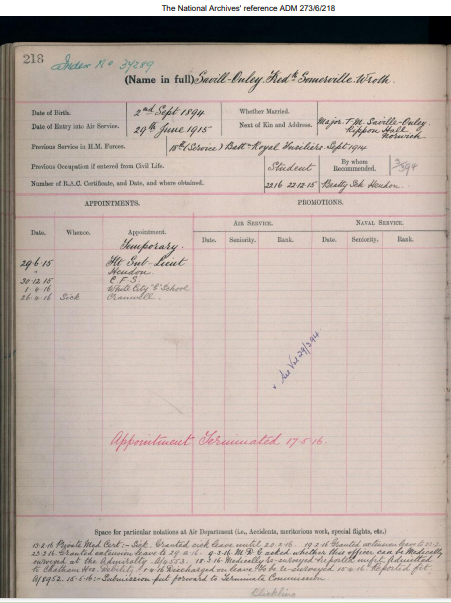 The National Archives' reference ADM 273/6/218
218
Index No. 37289
(Name in full) Savill-Onley. Fredk Somerville Wroth.
Date of Birth. 2nd Sept 1894 Whether Married.
Date of Entry into Air Service. 29th June 1915 Next of Kin and Address. Major. T. M. Saville-Onley. Rippon Hall Norwich
Previous Service in H.M. Forces. 18th (Service) Battn Royal Fusiliers. Sept 1914
Previous Occupation if entered from Civil Life. Student By whom Recommended.
Number of R.A.C. Certificate, and Date, and where obtained. 2216 22.12.15 Beatty Sch Hendon.
APPOINTMENTS. PROMOTIONS.
Air Service. Naval Service.
Date. Whence. Appointment. Date. Seniority. Rank. Date. Seniority. Rank.
Temporary.
29 6 15 Flt Sub-Lieut
" Hendon.
30.12.15 C.F.S.
1 4 16 White City School
26.4.16 Sick Cranwell.
See Vol 29/394
Appointment Terminated 17-5-16.
Space for particular notations at Air Department (i.e., Accidents, meritorious work, special flights, etc.)
Private Med Cert:- Sick. Granted sick leave until Granted extension leave to
Granted extension leave to M.D.G asked whether this officer can be Medically
surveyed at the Admiralty. Medically re-surveyed reported unfit. Admitted
to Chatham Hos. Debility. Discharged on leave. To be re-surveyed Reported fit.
15-5-16:- Submission put forward to Terminate Commission.